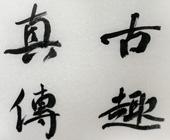 古趣
真傳